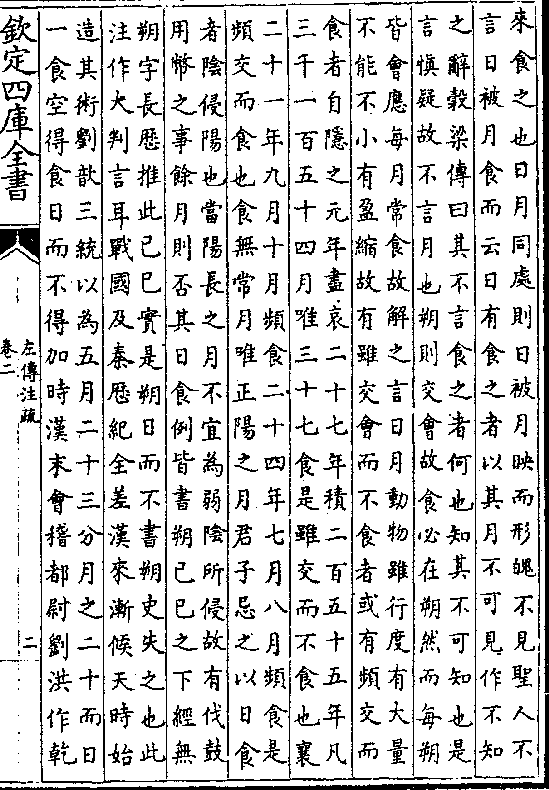 來食之也日月同處則日被月映而形魄不見聖人不
言日被月食而云日有食之者以其月不可見作不知
之辭穀梁傳曰其不言食之者何也知其不可知也是
言慎疑故不言月也朔則交會故食必在朔然而每朔
皆會應每月常食故解之言日月動物雖行度有大量
不能不小有盈縮故有雖交會而不食者或有頻交而
食者自隱之元年盡哀二十七年積二百五十五年凡
三千一百五十四月唯三十七食是雖交而不食也襄
二十一年九月十月頻食二十四年七月八月頻食是
頻交而食也食無常月唯正陽之月君子忌之以日食
者陰侵陽也當陽長之月不宜為弱陰所侵故有伐鼓
用幣之事餘月則否其日食例皆書朔己巳之下經無
朔字長歷推此己巳實是朔日而不書朔史失之也此
注作大判言耳戰國及秦歷紀全差漢來漸候天時始
造其術劉歆三統以為五月二十三分月之二十而日
一食空得食日而不得加時漢末會稽都尉劉洪作乾
欽定四庫全書
左傳注疏
卷二
二